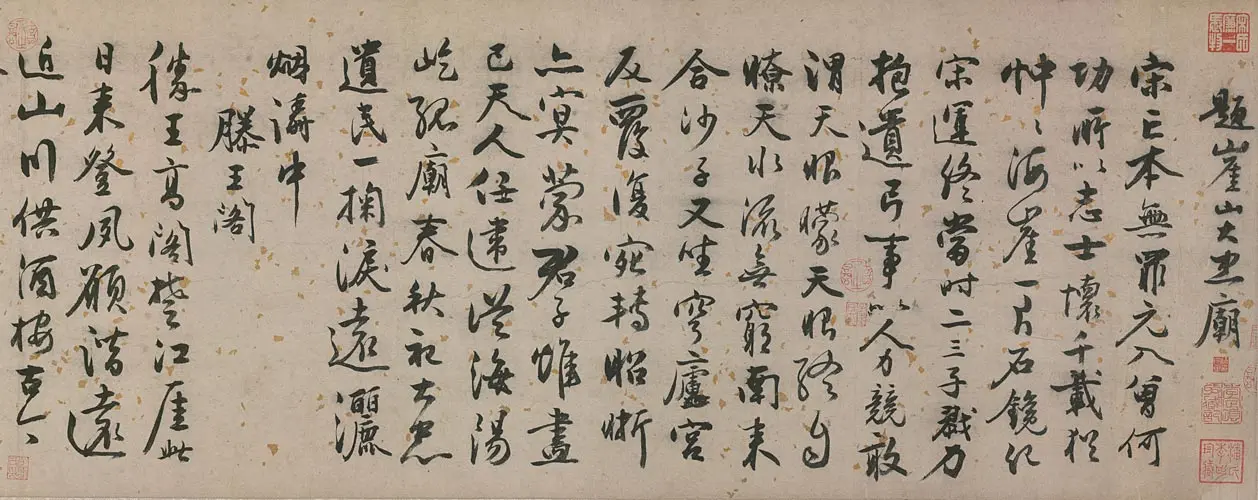 題崖山大忠廟
宋亡本無罪元入曾何
功所以志士懷千載猶
忡〻海崖一片石鏡紀
宋運終當時二三子戮力
抱遺弓事以人力競敢
謂天眼矇天眼終自
瞭天水流無窮南來
合沙子又生穹廬宮
反覆復宛轉昭晰
亦冥蒙君子惟盡
已天人任違從海湯
屹孤廟春秋祀大忠
遺民一掬淚遠灑
烟濤中
滕王閣
滕王高閣楚江厓此
日來登夙願諧遠
近山川供酒